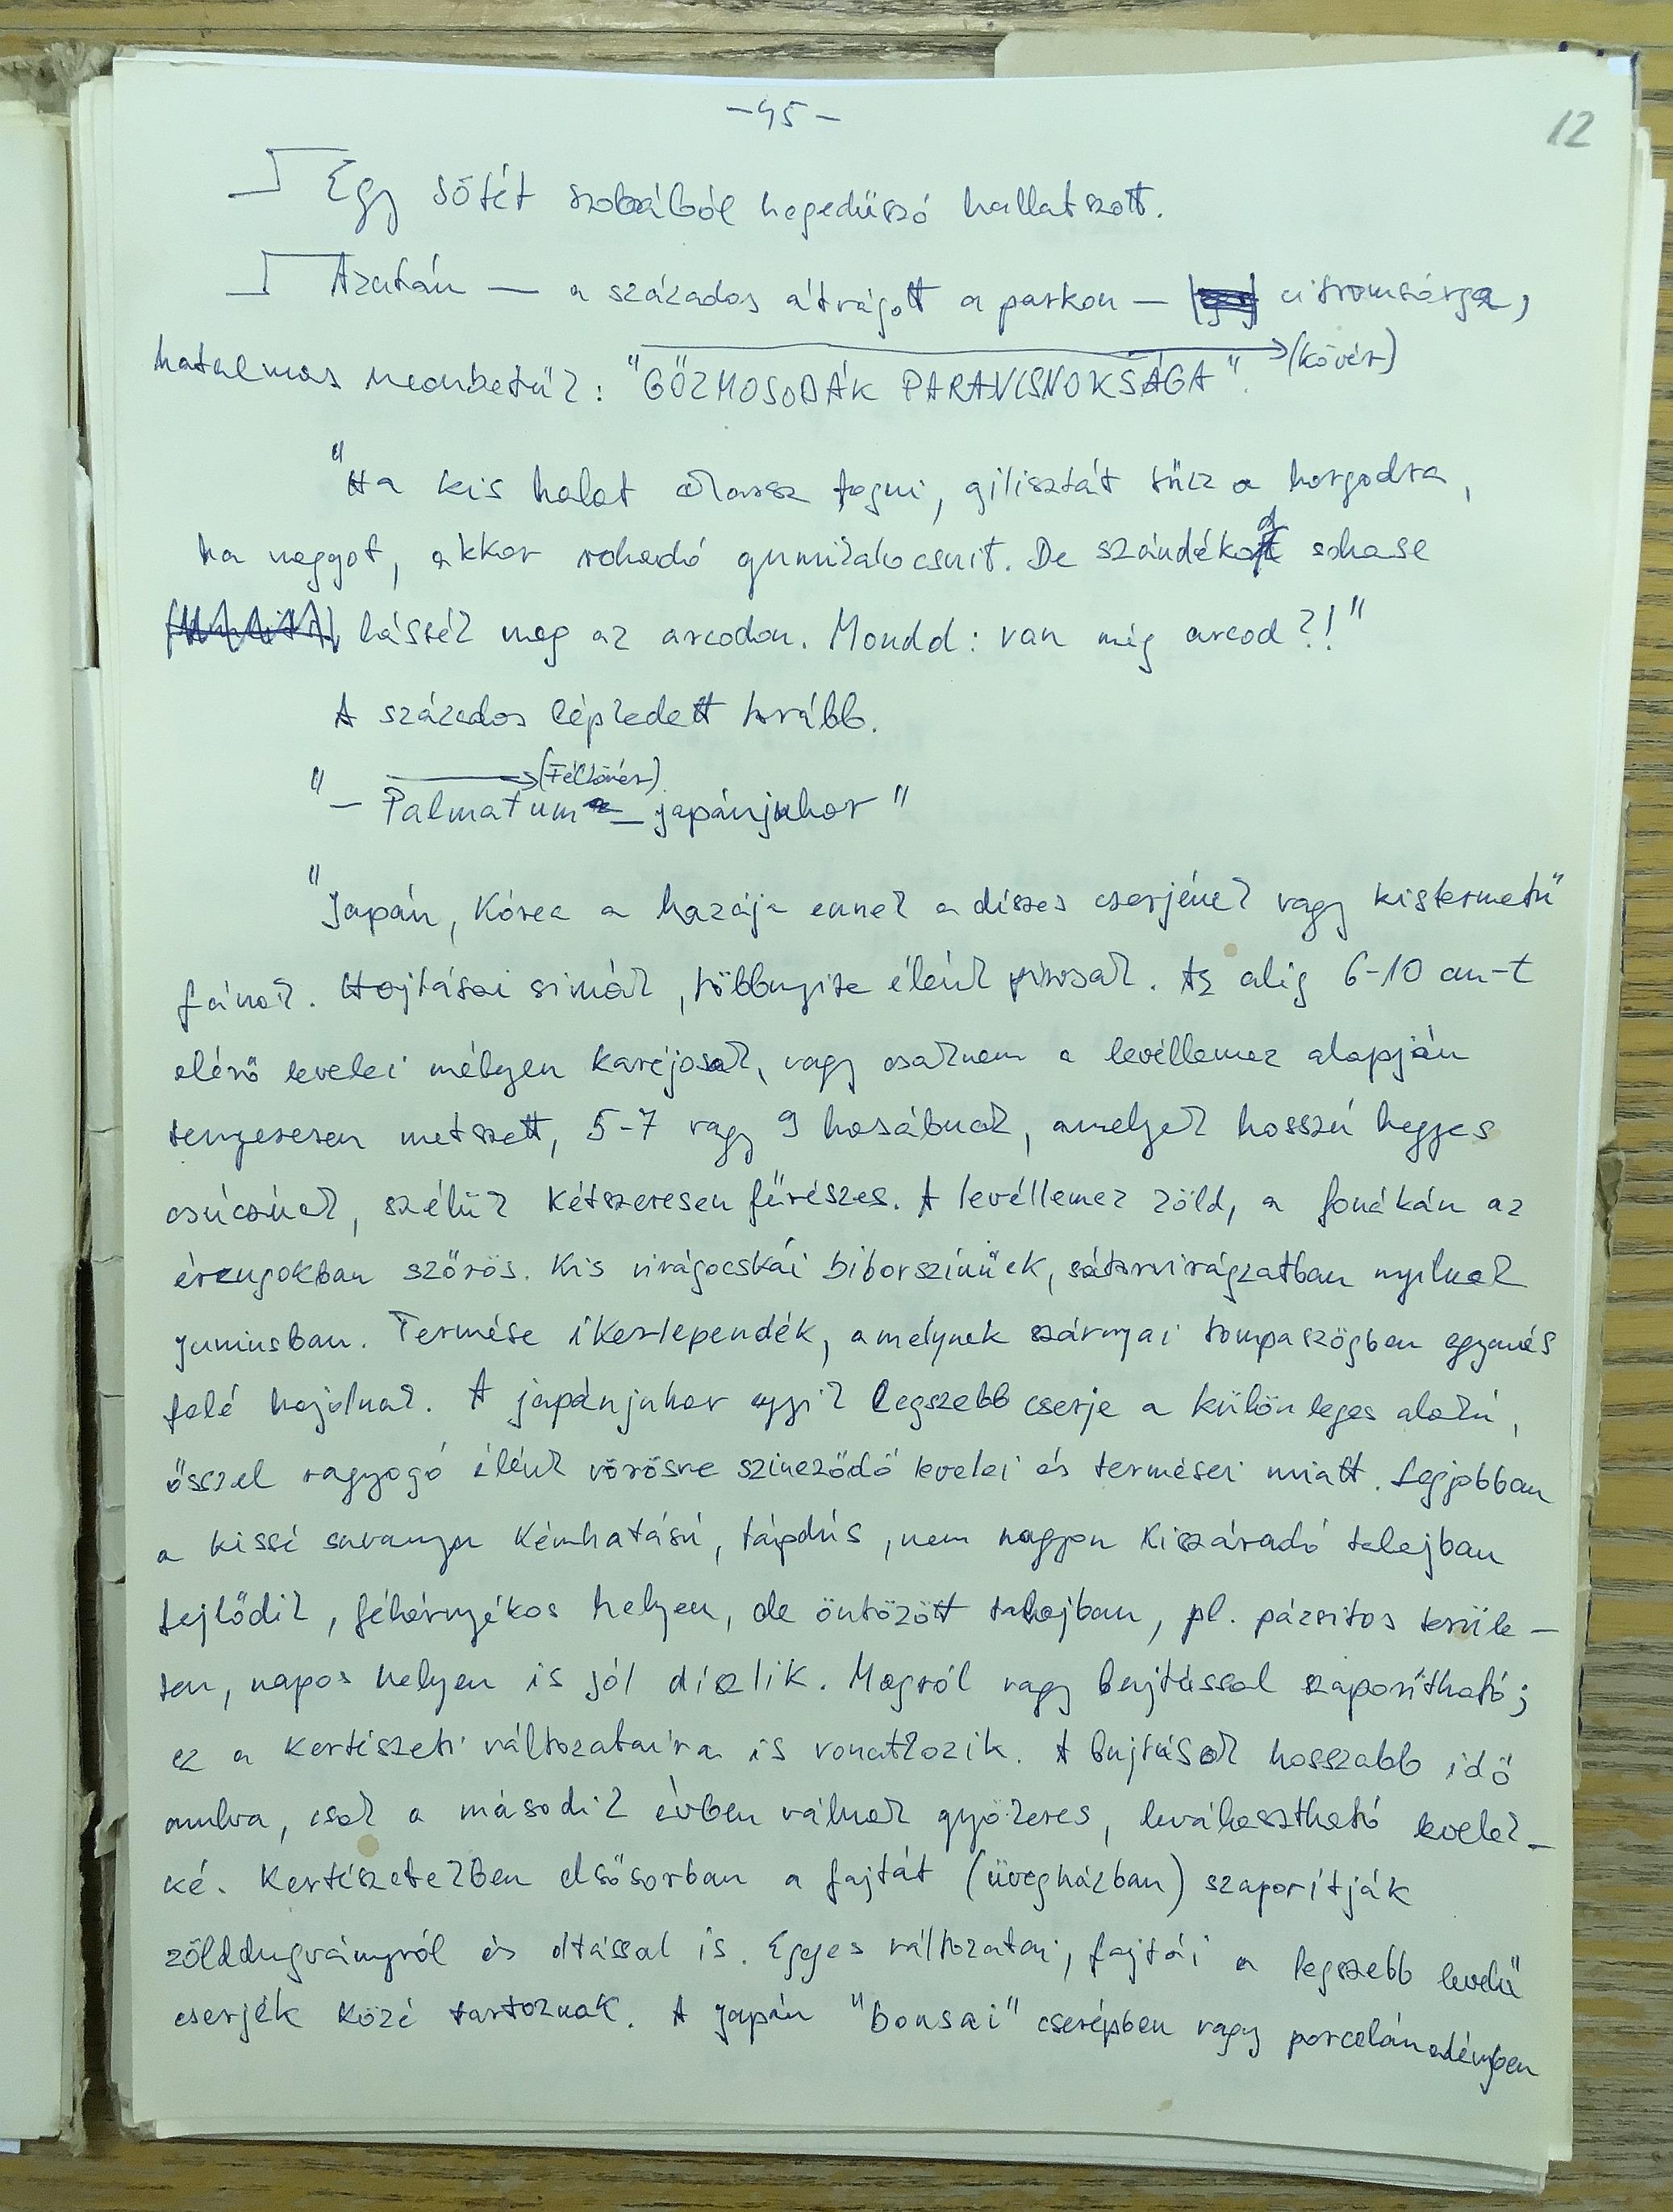 -45-
12
Egy sötét szobából hegedűszó hallatszott.
Azután — a százados átvágott a parkon — citromsárga,
(kövér)
hatalmas neonbetűk: "GŐZMOSODÁK PARAVISNOKSÁGA".
"Ha kis halat akarsz fogni, gilisztát tűzz a horgodra,
ha nagyot, akkor rohadó gumizakocsnit. De szándékot sohase
lássék meg az arcodon. Mondd: van még arcod?!"
A százados lépkedett tovább.
(Félkövér)
"- Palmatum - japánjuhar"
"Japán, Kórea a hazája ennek a díszes cserjének vagy kistermetű
fának. Hajtásai simák, többnyire élénk pirosak. Az alig 6-10 cm-t
elérő levelei mélyen karéjosak, vagy csaknem a levéllemez alapján
tenyeresen metszett, 5-7 vagy 9 hasábuak, amelyek hosszú hegyes
csúcsúak, szélük kétszeresen fűrészes. A levéllemez zöld, a fonákán az
érzugokban szőrös. Kis virágocskái bíborszínűek, sátorvirágzatban nyílnak
juniusban. Termése ikerlependék, amelynek szárnyai tompaszögben egymás
felé hajolnak. A japánjuhar egyik legszebb cserje a különleges alakú,
ősszel ragyogó élénk vörösre szineződő levelei és termései miatt. Legjobban
a kissé savanyu kémhatású, tápdús, nem nagyon kiszáradó talajban
fejlődik, félárnyékos helyen, de öntözött talajban, pl. pázsitos terüle-
ten, napos helyen is jól díszlik. Magról vagy bujtással szaporítható;
ez a kertészeti változataira is vonatkozik. A bujtások hosszabb idő
mulva, csak a második évben válnak gyökeres, leválasztható levelek-
ké. Kertészetekben elsősorban a fajtát (üvegházban) szaporítják
zölddugványról és oltással is. Egyes változatai, fajtái a legszebb levelű
cserjék közé tartoznak. A japán "bonsai" cserépben vagy porcelánedényben